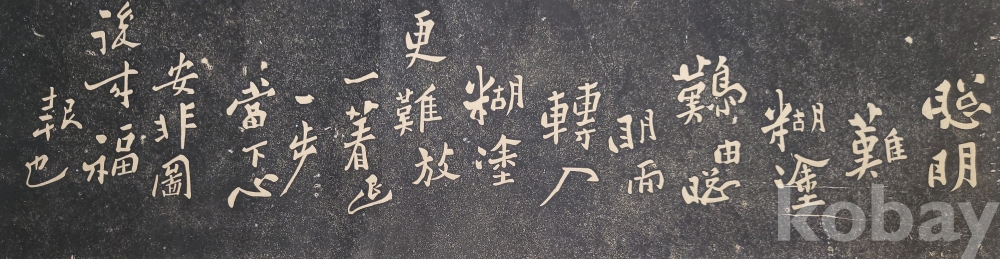 聰明
難
糊塗
難由聰
明而
轉入
糊塗
更難放
一著退
一步
當下心
安非圖
後來福
報也
kobay